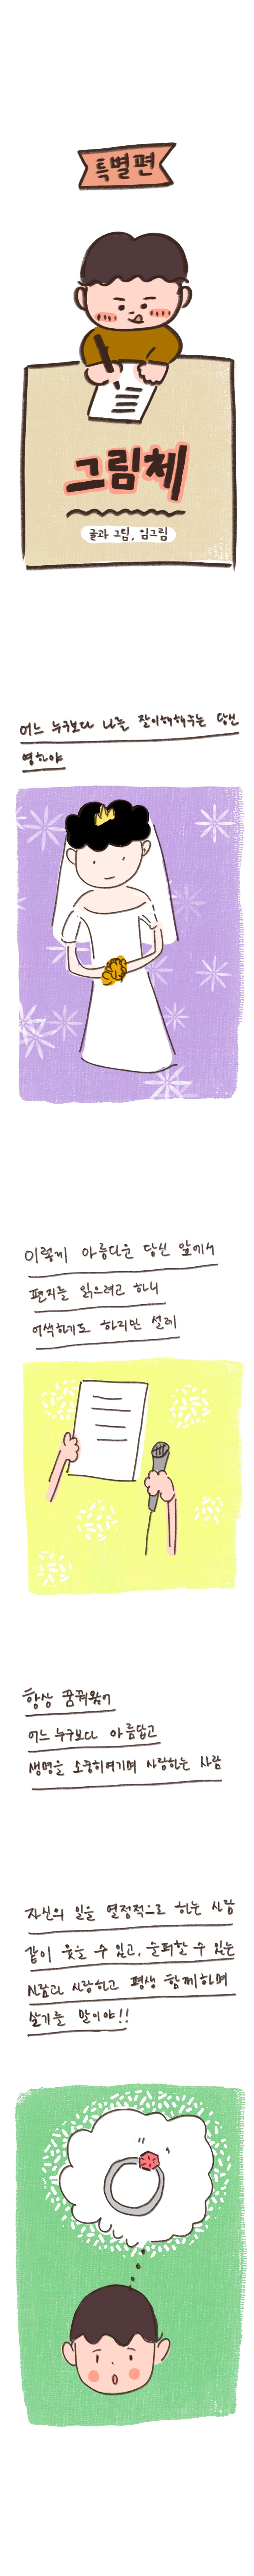 특별편
그림체
글과 그림, 임그림
어느 누구보다 나를 잘이해해주는 당신
영하야
이렇게 아름다운 당신 앞에서
편지를 읽으려고 하니
어색하기도 하지만 설레
항상 꿈꿔왔어
어느 누구보다 아름답고
생명을 소중히여기며 사랑하는 사람
자신의 일을 열정적으로 하는 사람
같이 웃을 수 있고, 슬퍼할 수 있는
사람과 사랑하고 평생 함께하며
살기를 말이야!!